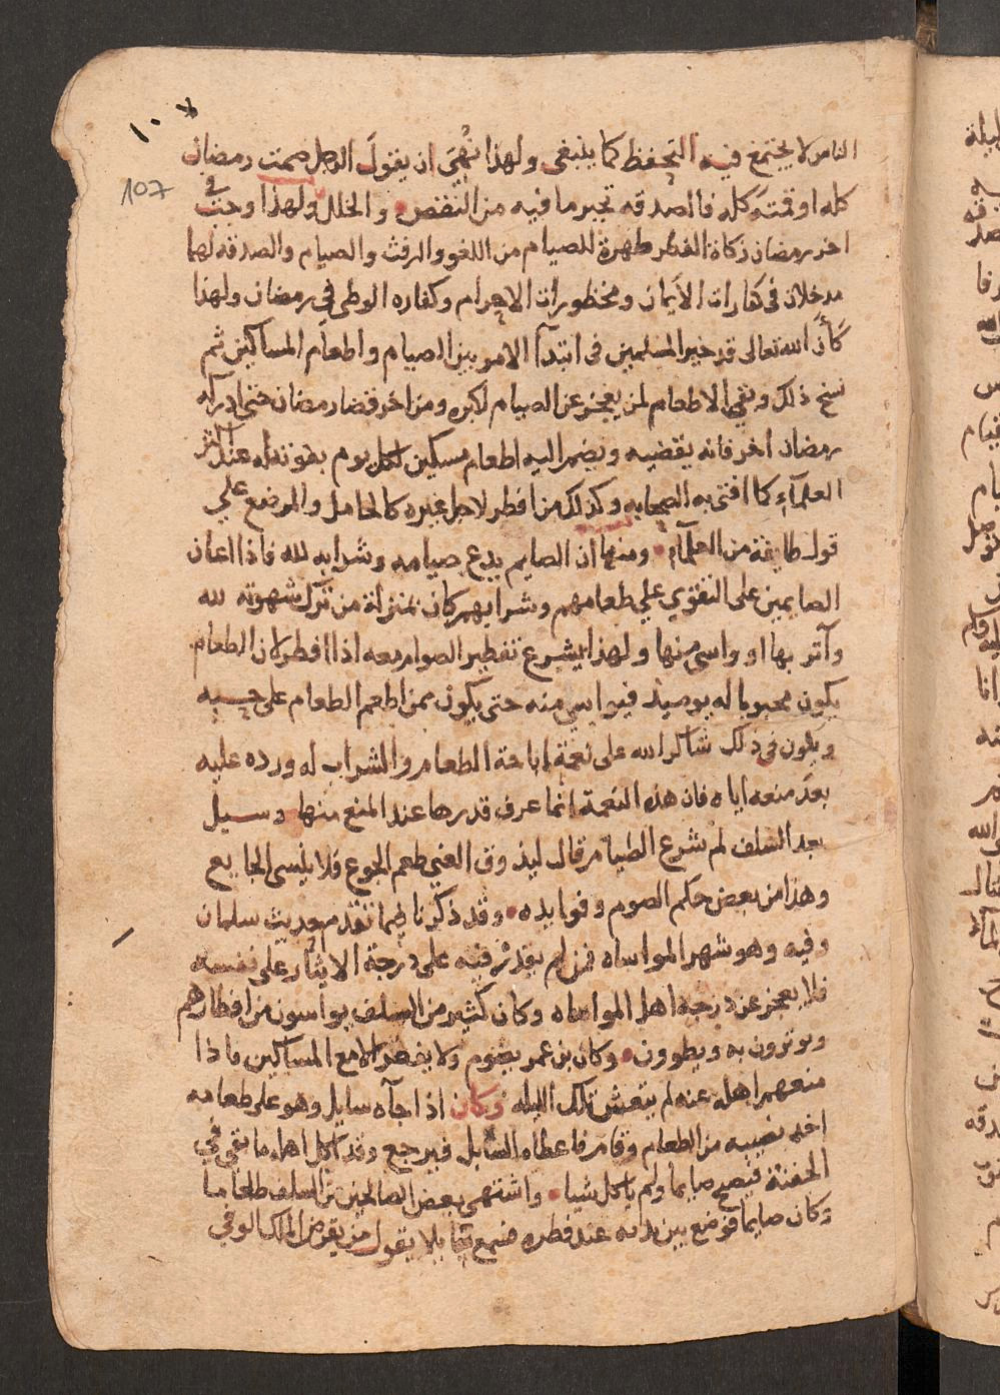 ١٠٧
107
الناس لا يجتمع فيه التحفظ كما ينبغي ولهذا نهي ان يقول الرجل صمت رمضان
كله او قمته كله فالصدقه تجبر ما فيه من النقص والخلل ولهذا وجب في
اخر رمضان زكاة الفطر طهرة للصيام من اللغو والرفث والصيام والصدقه لهما
مدخلان في كفارات الأيمان ومحظورات الاحرام وكفاره الوطي في رمضان ولهذا
كان الله تعالى قد خير المسلمين في ابتدآ الامر بين الصيام واطعام المساكين ثم
نسخ ذلك وبقي الاطعام لمن يعجز عن الصيام لكبره ومن اخر قضا رمضان حتى ادركه
رمضان اخر فانه يقضيه ويضم اليه اطعام مسكين لكل يوم عند اكثر
العلمآء كما افتى به الصحابه وكذلك من افطر لاجل غيره كالحامل والمرضع علي
قول طايفة من العلمآء ومنها ان الصايم يدع صيامه وشرابه لله فاذا اعان
الصايمين على التقوي علي طعامهم وشرابهم كان بمنزلة من ترك شهوته لله
وآثر بها او واسى منها ولهذا يشرع تفطير الصوام معه اذا افطر لان الطعام
يكون محبوبا له يوميذ فيواسي منه حتى يكون ممن اطعم الطعام على حبه
ويكون في ذلك شاكرا لله على نعمة اباحة الطعام والشراب له ورده عليه
بعد منعه اياه فان هذه النعمة انما عرف قدرها عند المنع منها وسيل
بعد السلف لم شرع الصيام قال ليذوق الغني طعم الجوع فلا ينسى الجايع
وهذا من بعض حكم الصوم وفوايده وقد ذكرنا فيما تقدم حديث سلمان
وفيه وهو شهر المواساه فمن لم يقدر فيه على درجة الايثار على نفسه
فلا يعجز عن درجه اهل المواساه وكان كثير من السلف يواسون من افطارهم
ويوثرون به ويطوون وكان بن عمر يصوم ولا يفطر الا مع المساكين فاذا
منعهم اهله عنه لم يتعش تلك الليله وكان اذا جآه سايل وهو على طعامه
اخذ نصيبه من الطعام وقام فاعطاه السايل فيرجع وقد اكل اهله ما بقي في
الجفنة فيصبح صايما ولم ياكل شيا واشتهى بعض الصالحين من السلف طعاما
وكان صايما فوضع بين يديه عند فطره فسمع قايلا يقول من يقرض الملك الوفي